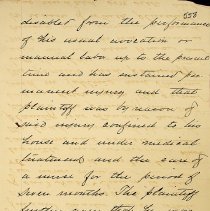 558
disabled from the performance
of his usual avocation or
manual labor up to the present
time and has sustained per
manent injury and that
plaintiff was by reason of
said injury confined to his
house and under medical
treatment and the care of
a nurse for the period of
seven months. The plaintiff
further avers that he was